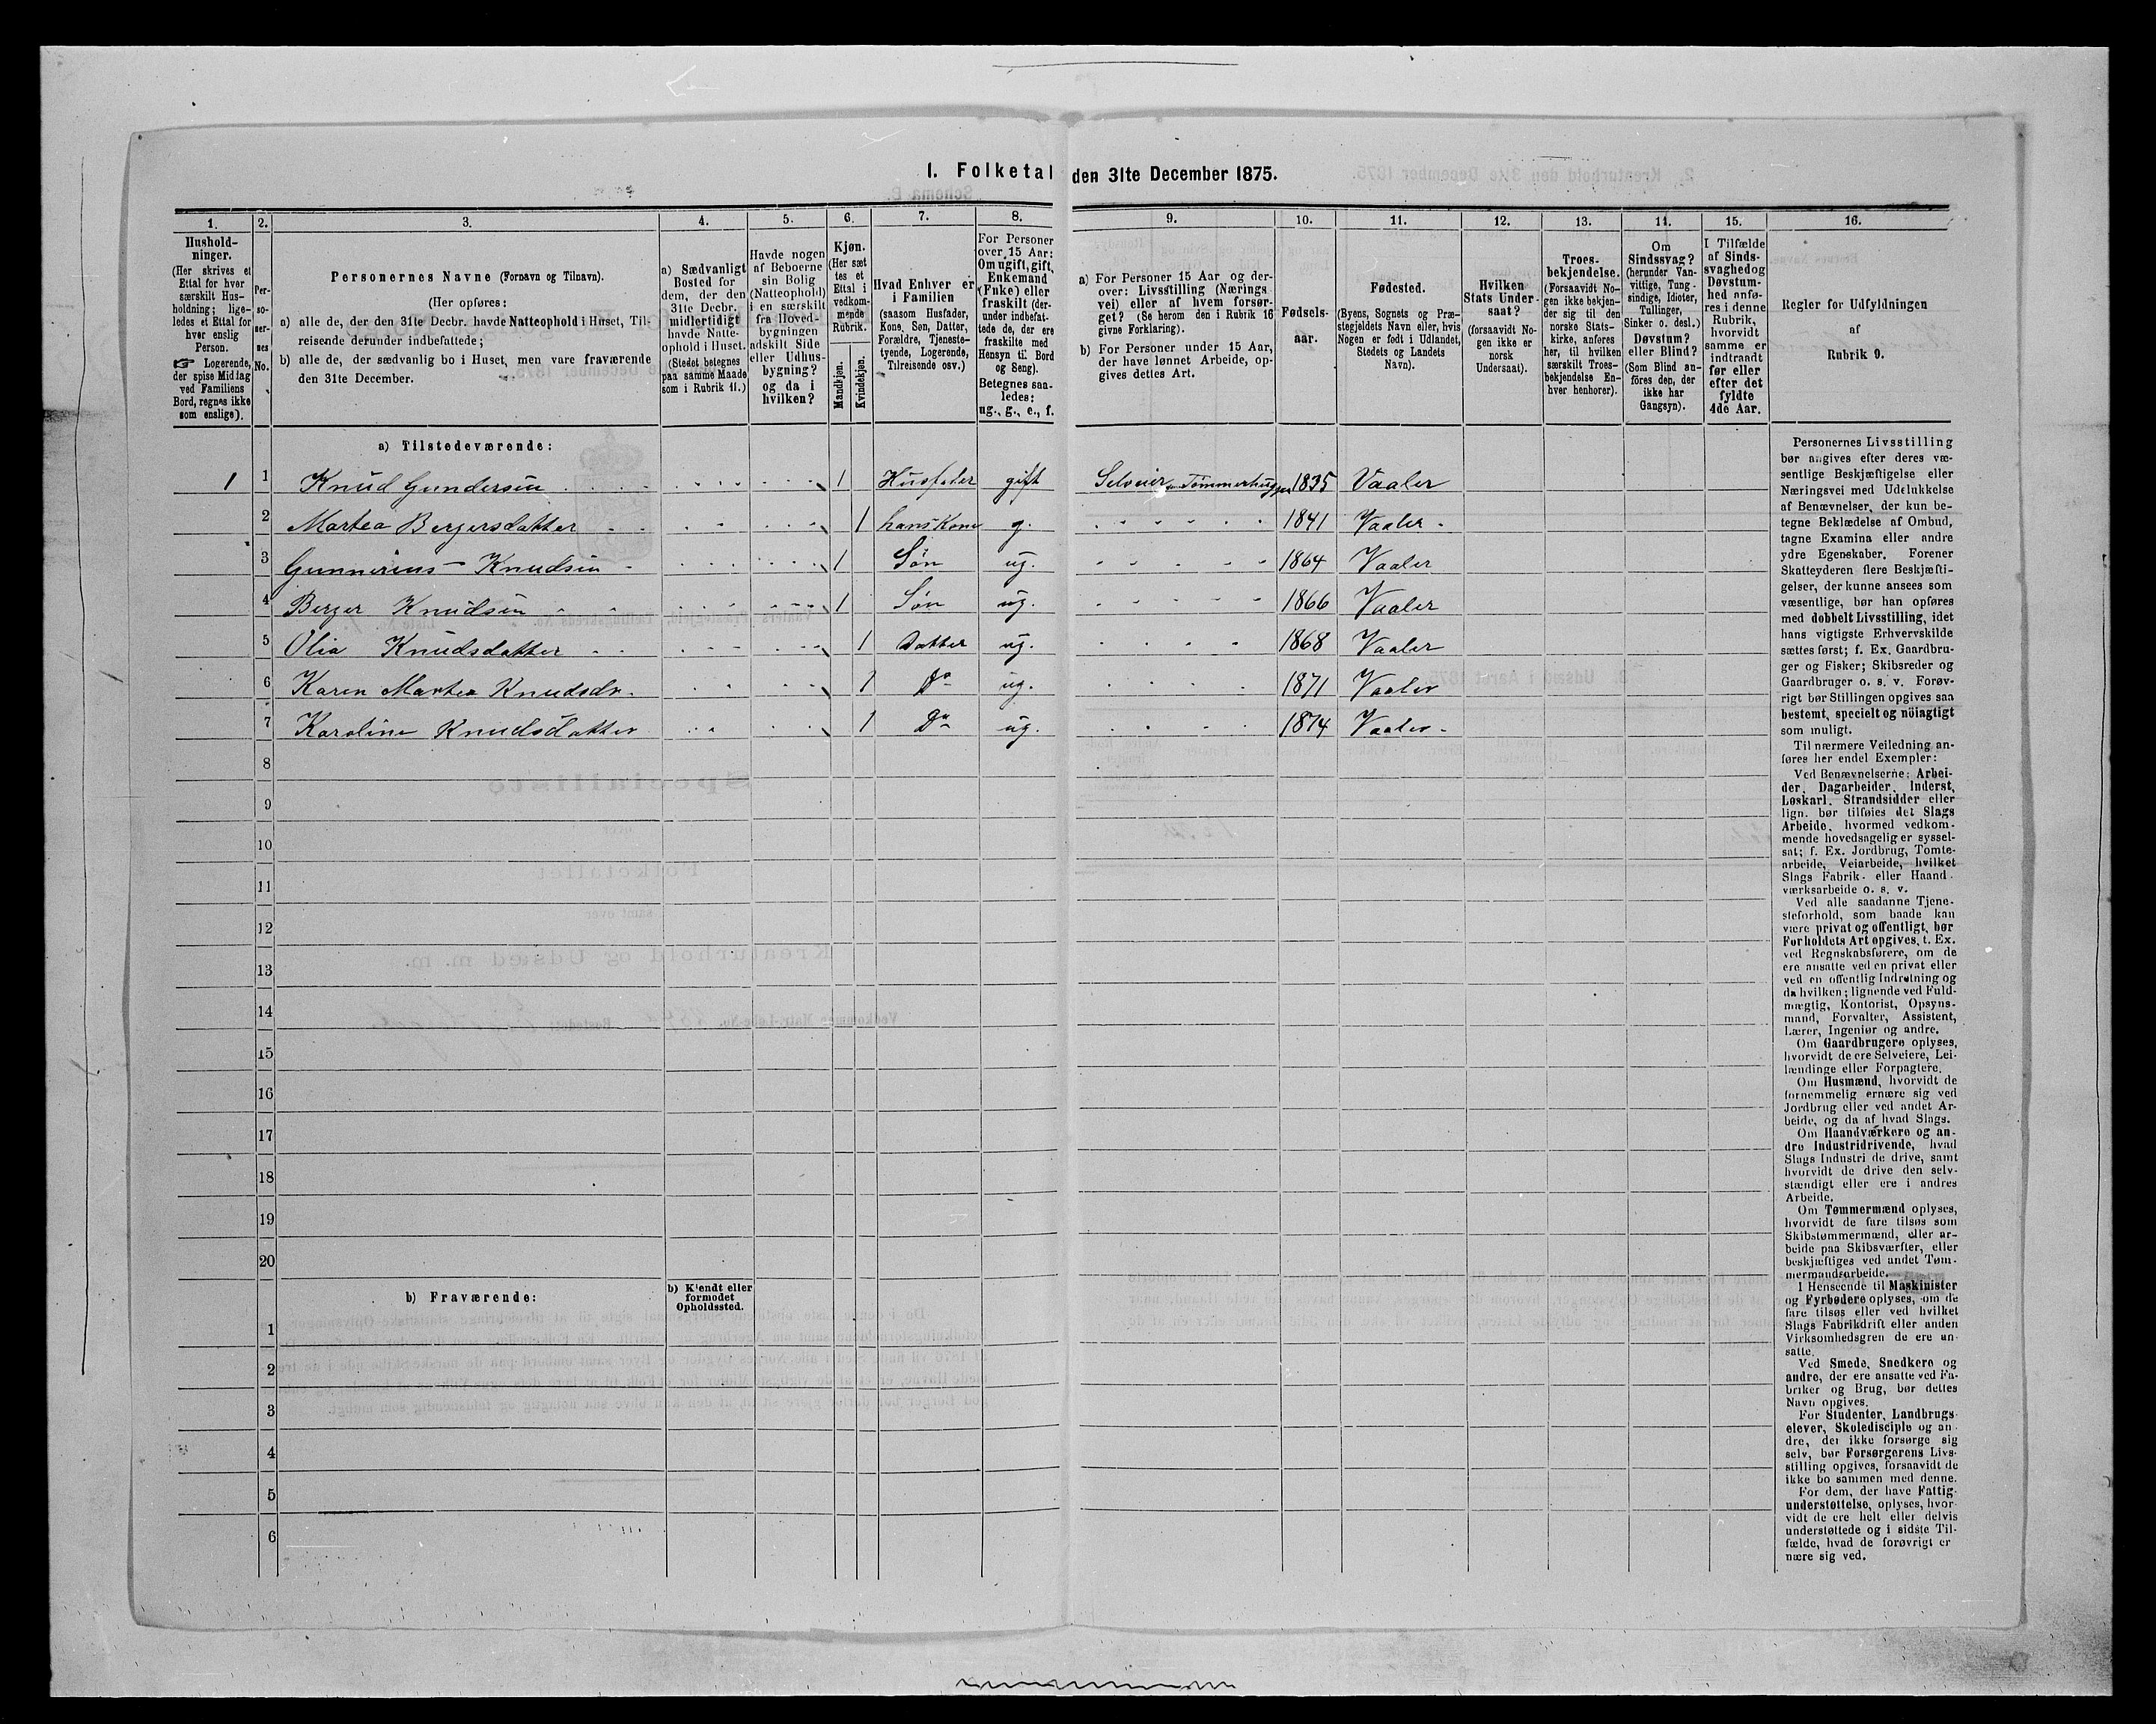 1. Folketal den 31te December 1875.
1. 2. 3. 4. 5. 6. 7. 8. 9. 10. 11. 12. 13. 14. 15. 16.
Hushold-
ninger.
(Her skrives et
Ettal for hver
særskilt Hus-
holdning; lige-
ledes et Ettal for
hver enslig
Person.
☞ Logerende,
der spise Middag
ved Familiens
Bord, regnes ikke
som enslige).
Per-
so-
ner-
nes
No.
Personernes Navne (Fornavn og Tilnavn).
(Her opføres:
a) alle de, der den 31te Decbr. havde Natteophold i Huset, Til-
reisende derunder indbefattede;
b) alle de, der sædvanlig bo i Huset, men vare fraværende
den 31te December.
a) Sædvanligt
Bosted for
dem, der den
31te Decbr.
midlertidigt
havde Natte-
ophold i Huset.
(Stedet betegnes
paa samme Maade
som i Rubrik 11.)
Havde nogen
af Beboerne
sin Bolig
(Natteophold)
i en særskilt
fra Hoved-
bygningen
adskilt Side
eller Udhus-
bygning?
og da i
hvilken?
Kjøn.
(Her sæt
tes et
Ettal i
vedkom-
mende
Rubrik.
Mandkjøn.
Kvindekjøn.
Hvad Enhver er
i Familien
(saasom Husfader,
Kone, Søn, Datter,
Forældre, Tjeneste-
tyende, Logerende,
Tilreisende osv.)
For Personer
over 15 Aar:
Om ugift, gift,
Enkemand
(Enke) eller
fraskilt (der-
under indbefat-
tede de, der ere
fraskilte med
Hensyn til Bord
og Seng).
Betegnes saa-
ledes:
ug., g., e., f.
a) For Personer 15 Aar og der-
over: Livsstilling (Nærings
vei) eller af hvem forsør-
get? (Se herom den i Rubrik 16
givne Forklaring).
b) For Personer under 15 Aar,
der have lønnet Arbeide, op-
gives dettes Art.
Fødsels-
aar.
Fødested.
(Byens, Sognets og Præ-
stegjeldets Navn eller, hvis
Nogen er født i Udlandet,
Stedets og Landets
Navn).
Hvilken
Stats Under-
saat?
(forsaavidt No-
gen ikke er
norsk
Undersaat).
Troes-
bekjendelse.
(Forsaavidt No-
gen ikke bekjen-
der sig til den
norske Stats-
kirke, anføres
her, til hvilken
særskilt Troes-
bekjendelse En-
hver henhører).
Om
Sindssvag?
(herunder Van-
vittige, Tung-
sindige, Idioter,
Tullinger,
Sinker o. desl.)
Døvstum?
eller Blind?
(Som Blind an-
føres den, der
ikke har
Gangsyn).
I Tilfælde
af Sinds-
svaghed og
Døvstum-
hed anfø-
res i denne
Rubrik,
hvorvidt
samme er
indtraadt
før eller
efter det
fyldte
4de Aar.
Regler for Udfyldningen
af
Rubrik 9.
a) Tilstedeværende:
1 1 Knud Gundersen 1 Husfader gift Selveier Tømmerhugger 1835 Vaaler
2 Martea Bergersdatter 1 hans Kone g. 1841 Vaaler
3 Gunnerius Knudsen 1 Søn ug. 1864 Vaaler
4 Berger Knudsen 1 Søn ug. 1866 Vaaler
5 Olia Knudsdatter 1 Datter ug. 1868 Vaaler
6 Karen Martea Knudsdr. 1 Do ug. 1871 Vaaler
7 Karoline Knudsdatter 1 Do ug. 1874 Vaaler
8
9
10
11
12
13
14
15
16
17
18
19
20
b) Fraværende:
b) Kjendt eller
formodet
Opholdssted.
1
2
3
4
5
6
Personernes Livsstilling
bør angives efter deres væ-
sentlige Beskjæftigelse eller
Næringsvei med Udelukkelse
af Benævnelser, der kun be-
tegne Beklædelse af Ombud,
tagne Examina eller andre
ydre Egenskaber. Forener
Skatteyderen flere Beskjæfti-
gelser, der kunne ansees som
væsentlige, bør han opføres
med dobbelt Livsstilling, idet
hans vigtigste Erhvervskilde
sættes først; f. Ex. Gaardbru-
ger og Fisker; Skibsreder og
Gaardbruger o. s. v. Forøv-
rigt bør Stillingen opgives saa
bestemt, specielt og nöiagtigt
som muligt.
Til nærmere Veiledning an-
føres her endel Exempler:
Ved Benævnelserne: Arbei-
der, Dagarbeider, Inderst,
Løskarl, Strandsidder eller
lign. bør tilføies det Slags
Arbeide, hvormed vedkom-
mende hovedsagelig er syssel-
sat; f. Ex. Jordbrug, Tomte-
arbeide, Veiarbeide, hvilket
Slags Fabrik- eller Haand-
værksarbeide o. s. v.
Ved alle saadanne Tjene-
steforhold, som baade kan
være privat og offentligt, bør
Forholdets Art opgives, t. Ex.
ved Regnskabsførere, om de
ere ansatte ved en privat eller
ved en offentlig Indretning og
da hvilken; lignende ved Fuld-
mægtig, Kontorist, Opsyns-
mand, Forvalter, Assistent,
Lærer, Ingeniør og andre.
Om Gaardbrugere oplyses,
hvorvidt de ere Selveiere, Lei-
lændinge eller Forpagtere.
Om Husmænd, hvorvidt de
fornemmelig ernære sig ved
Jordbrug eller ved andet Ar-
beide, og da af hvad Slags.
Om Haandværkere og an-
dre Industridrivende, hvad
Slags Industri de drive, samt
hvorvidt de drive den selv-
stændigt eller ere i andres
Arbeide.
Om Tømmermænd oplyses,
hvorvidt de fare tilsøs som
Skibstømmermænd, eller ar-
beide paa Skibsværfter, eller
beskjæftiges ved andet Tøm-
mermandsarbeide.
I Henseende til Maskinister
og Fyrbødere oplyses, om de
fare tilsøs eller ved hvilket
Slags Fabrikdrift eller anden
Virksomhedsgren de ere an-
satte.
Ved Smede, Snedkere og
andre, der ere ansatte ved Fa-
briker og Brug, bør dettes
Navn opgives.
For Studenter, Landbrugs-
elever, Skoledisciple og an-
dre, der ikke forsørge sig
selv, bør Forsørgerens Livs-
stilling opgives, forsaavidt de
ikke bo sammen med denne.
For dem, der have Fattig-
understøttelse, oplyses, hvor-
vidt de ere helt eller delvis
understøttede og i sidste Til-
fælde, hvad de forøvrigt er
nære sig ved.